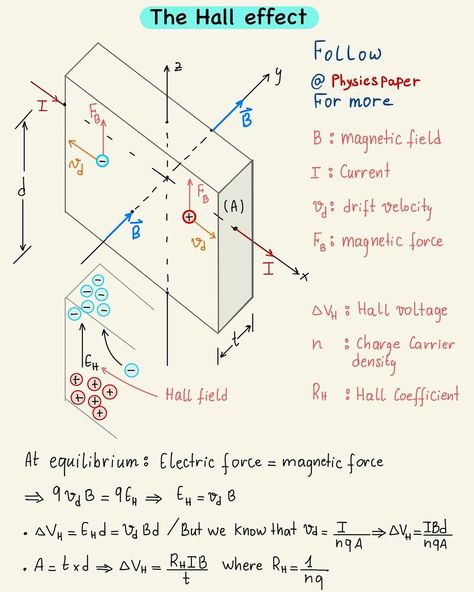 The Hall effect
Follow
@ Physicspaper
For more
B : magnetic field
I : Current
v_d : drift velocity
F_B : magnetic force
ΔV_H : Hall voltage
n : Charge Carrier
density
R_H : Hall Coefficient
z
y
I
F_B
B⃗
v_d
−
d
F_B
(A)
+
v_d
B⃗
I
x
t
− − − − − −
E_H
−
+ + + + + +
Hall field
At equilibrium : Electric force = magnetic force
⇒ q v_d B = q E_H ⇒ E_H = v_d B
• ΔV_H = E_H d = v_d Bd / But we know that v_d = I/nqA ⇒ ΔV_H = IBd/nqA
• A = t x d ⇒ ΔV_H = R_H IB/t where R_H = 1/nq